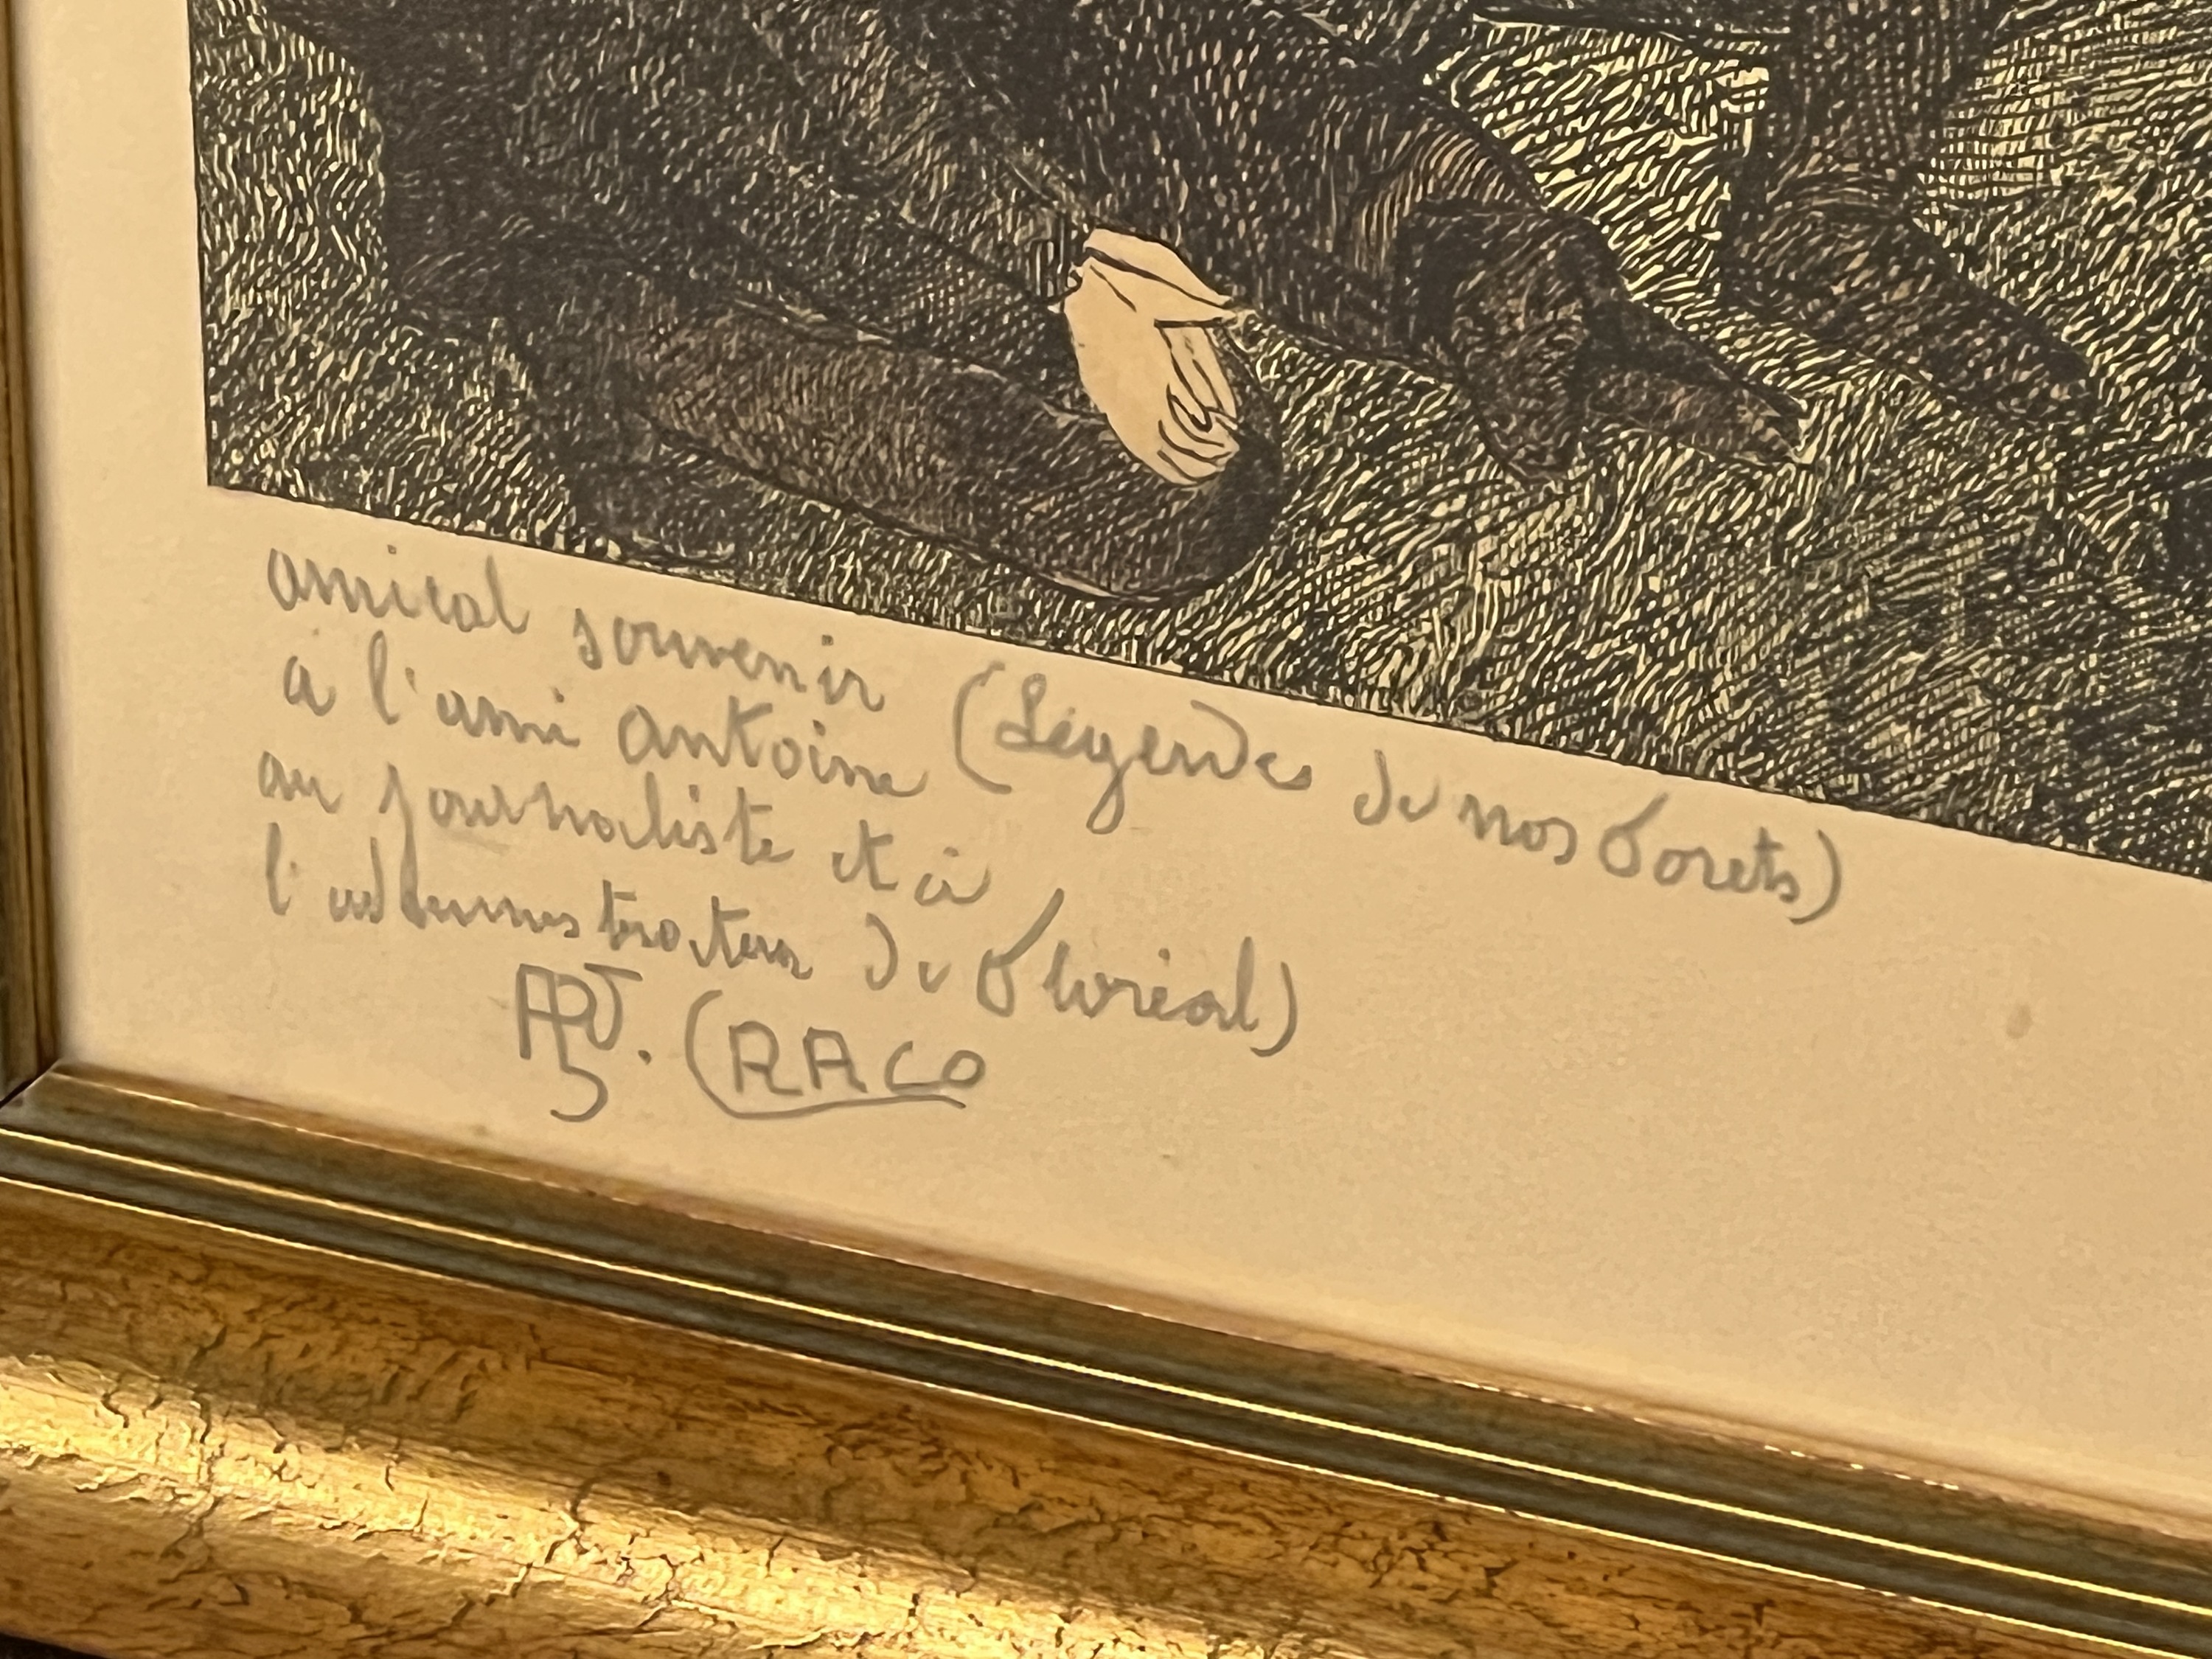 amical souvenir
à l'ami Antoine (Légendes de nos forets)
au journaliste et à
l'administrateur de Floréal)
(RACO